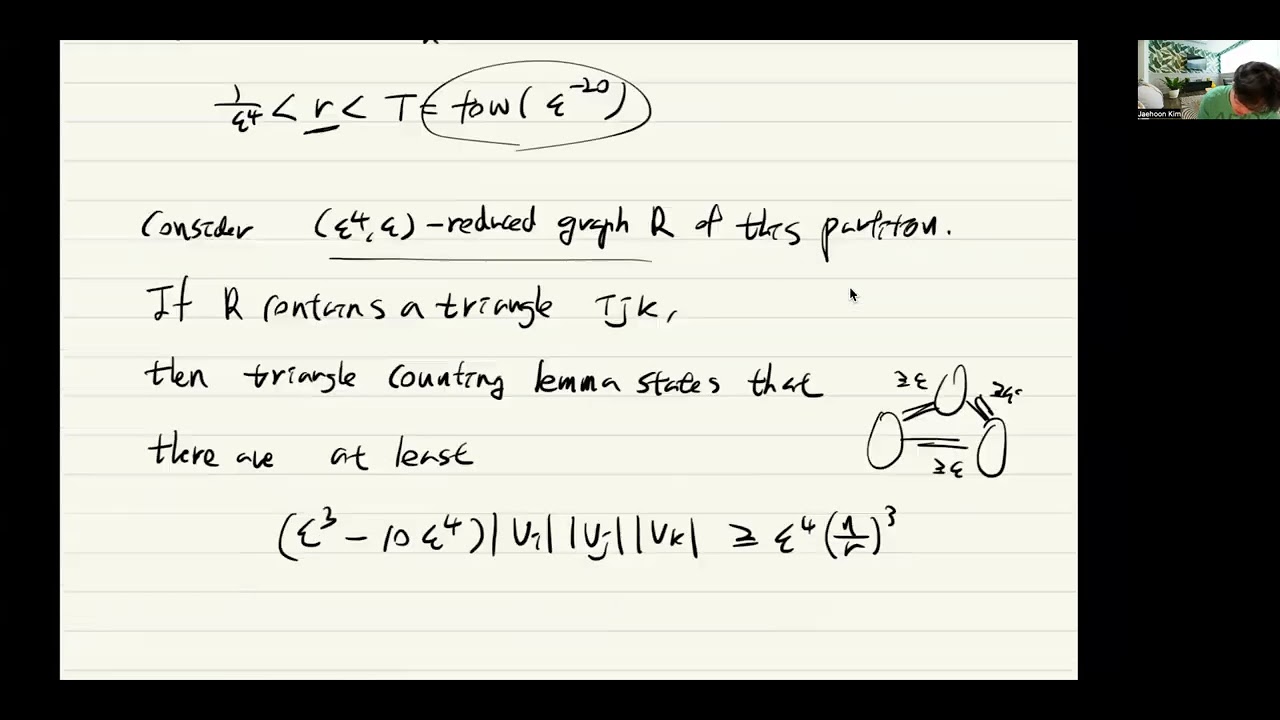 1/ε⁴ < r < T = tow(ε⁻²⁰)
Consider (ε⁴, ε)-reduced graph R of this partition.
If R contains a triangle ijk,
then triangle counting lemma states that
≥ε ≥ε
there are at least
≥ε
(ε³ - 10ε⁴)|Vi||Vj||Vk| ≥ ε⁴(n/r)³
Jaehoon Kim